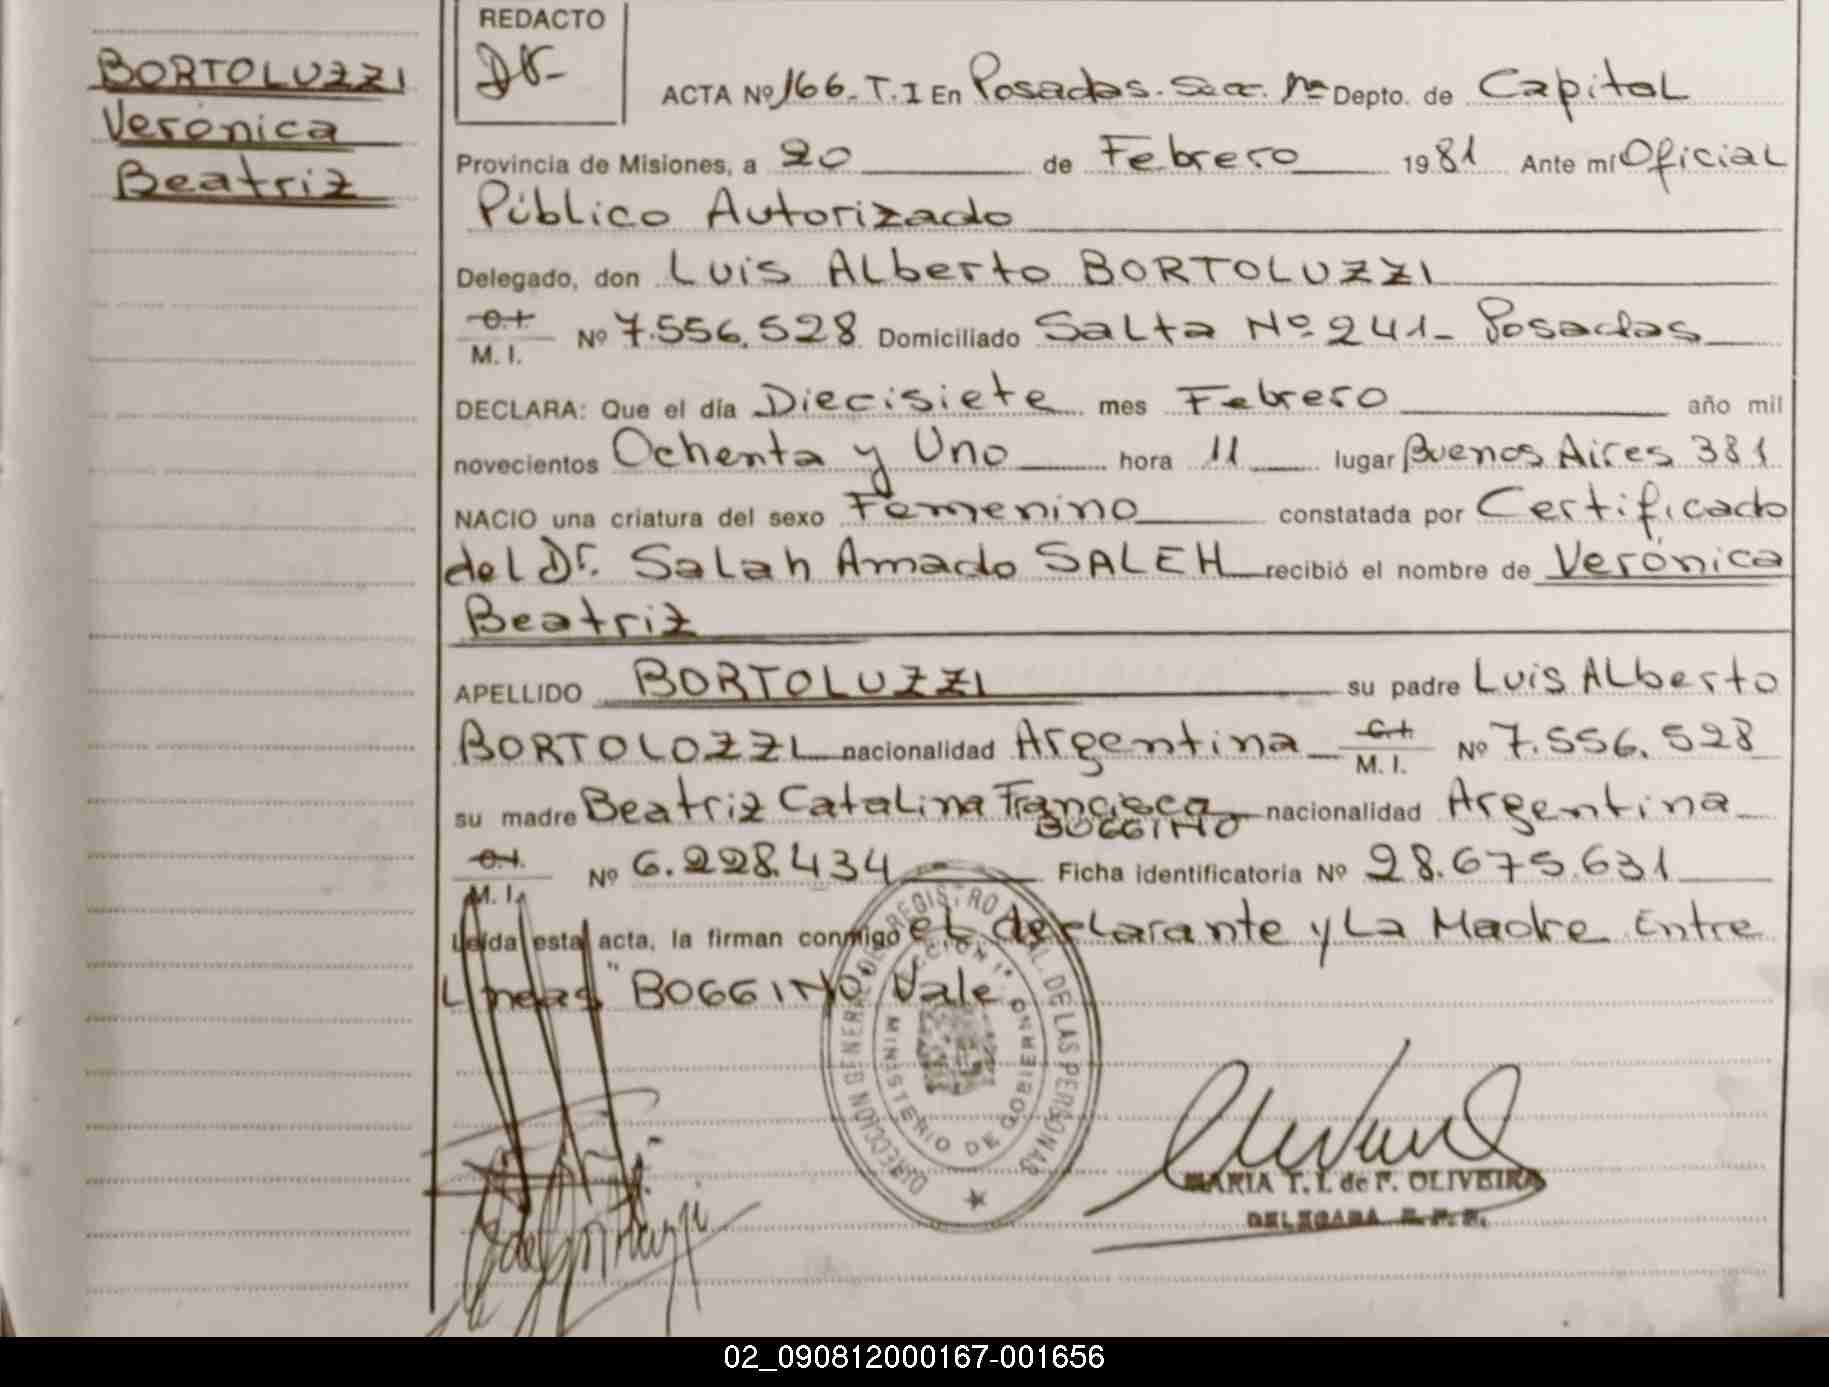 BORTOLUZZI
Verónica
Beatriz
REDACTO
ACTA Nº 166. T. I En Posadas. Secc. 1ª Depto. de Capital
Provincia de Misiones, a 20 de Febrero 1981 Ante mí Oficial
Público Autorizado
Delegado, don Luis Alberto BORTOLUZZI
C.I. M. I. Nº 7.556.528 Domiciliado Salta Nº 241- Posadas
DECLARA: Que el día Diecisiete mes Febrero año mil
novecientos Ochenta y Uno hora 11 lugar Buenos Aires 381
NACIO una criatura del sexo Femenino constatada por Certificado
del Dr. Salah Amado SALEH recibió el nombre de Verónica
Beatriz
APELLIDO BORTOLUZZI su padre Luis Alberto
BORTOLOZZI nacionalidad Argentina C.I. M. I. Nº 7.556.528
su madre Beatriz Catalina Francisca nacionalidad Argentina
BOGGINO
C.I. M. I. Nº 6.228.434 Ficha identificatoria Nº 28.675.631
Leída esta acta, la firman conmigo el declarante y La Madre Entre
Lineas "BOGGINO" Vale
DIRECCION GENERAL DE REGISTRO DE LAS PERSONAS
SECCION 1ª
MINISTERIO DE GOBIERNO
MARIA T. I. de F. OLIVEIRA
DELEGADA
02_090812000167-001656